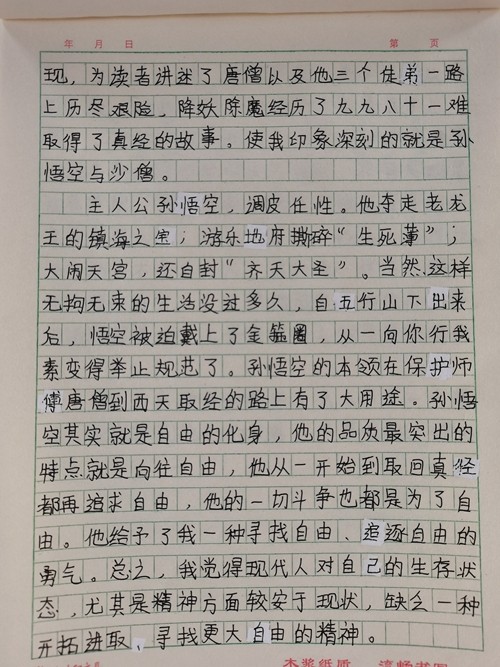 年 月 日 第 页
现，为读者讲述了唐僧以及他三个徒弟一路
上历尽艰险，降妖除魔经历了九九八十一难
取得了真经的故事。使我印象深刻的就是孙
悟空与沙僧。
主人公孙悟空，调皮任性。他夺走老龙
王的镇海之宝；游乐地府撕碎“生死薄”；
大闹天宫，还自封“齐天大圣”。当然这样
无拘无束的生活没过多久，自五行山下出来
后，悟空被迫戴上了金箍圈，从一向你行我
素变得举止规范了。孙悟空的本领在保护师
傅唐僧到西天取经的路上有了大用途。孙悟
空其实就是自由的化身，他的品质最突出的
特点就是向往自由，他从一开始到取回真经
都再追求自由，他的一切斗争也都是为了自
由。他给予了我一种寻找自由、追逐自由的
勇气。总之，我觉得现代人对自己的生存状
态，尤其是精神方面较安于现状，缺乏一种
开拓进取、寻找更大自由的精神。
木浆纸质 流畅书写